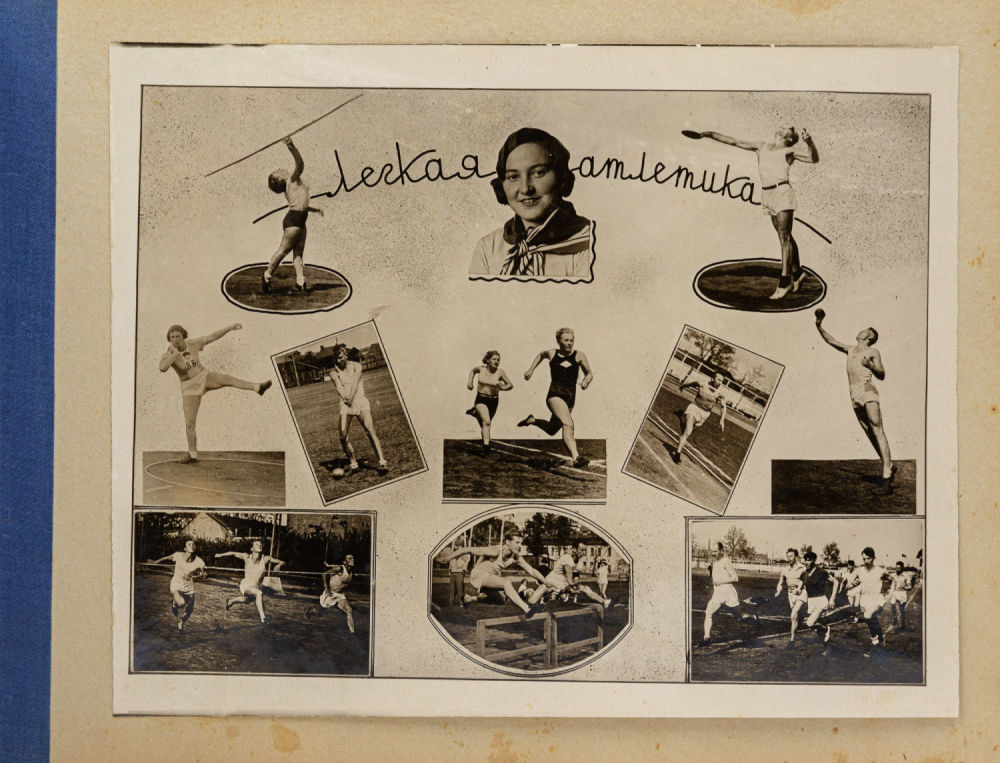 Легкая атлетика